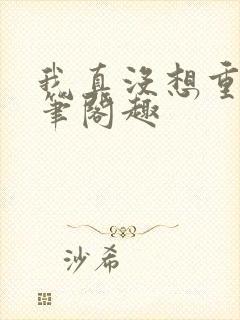 我真没想重
笔阁趣
沙希